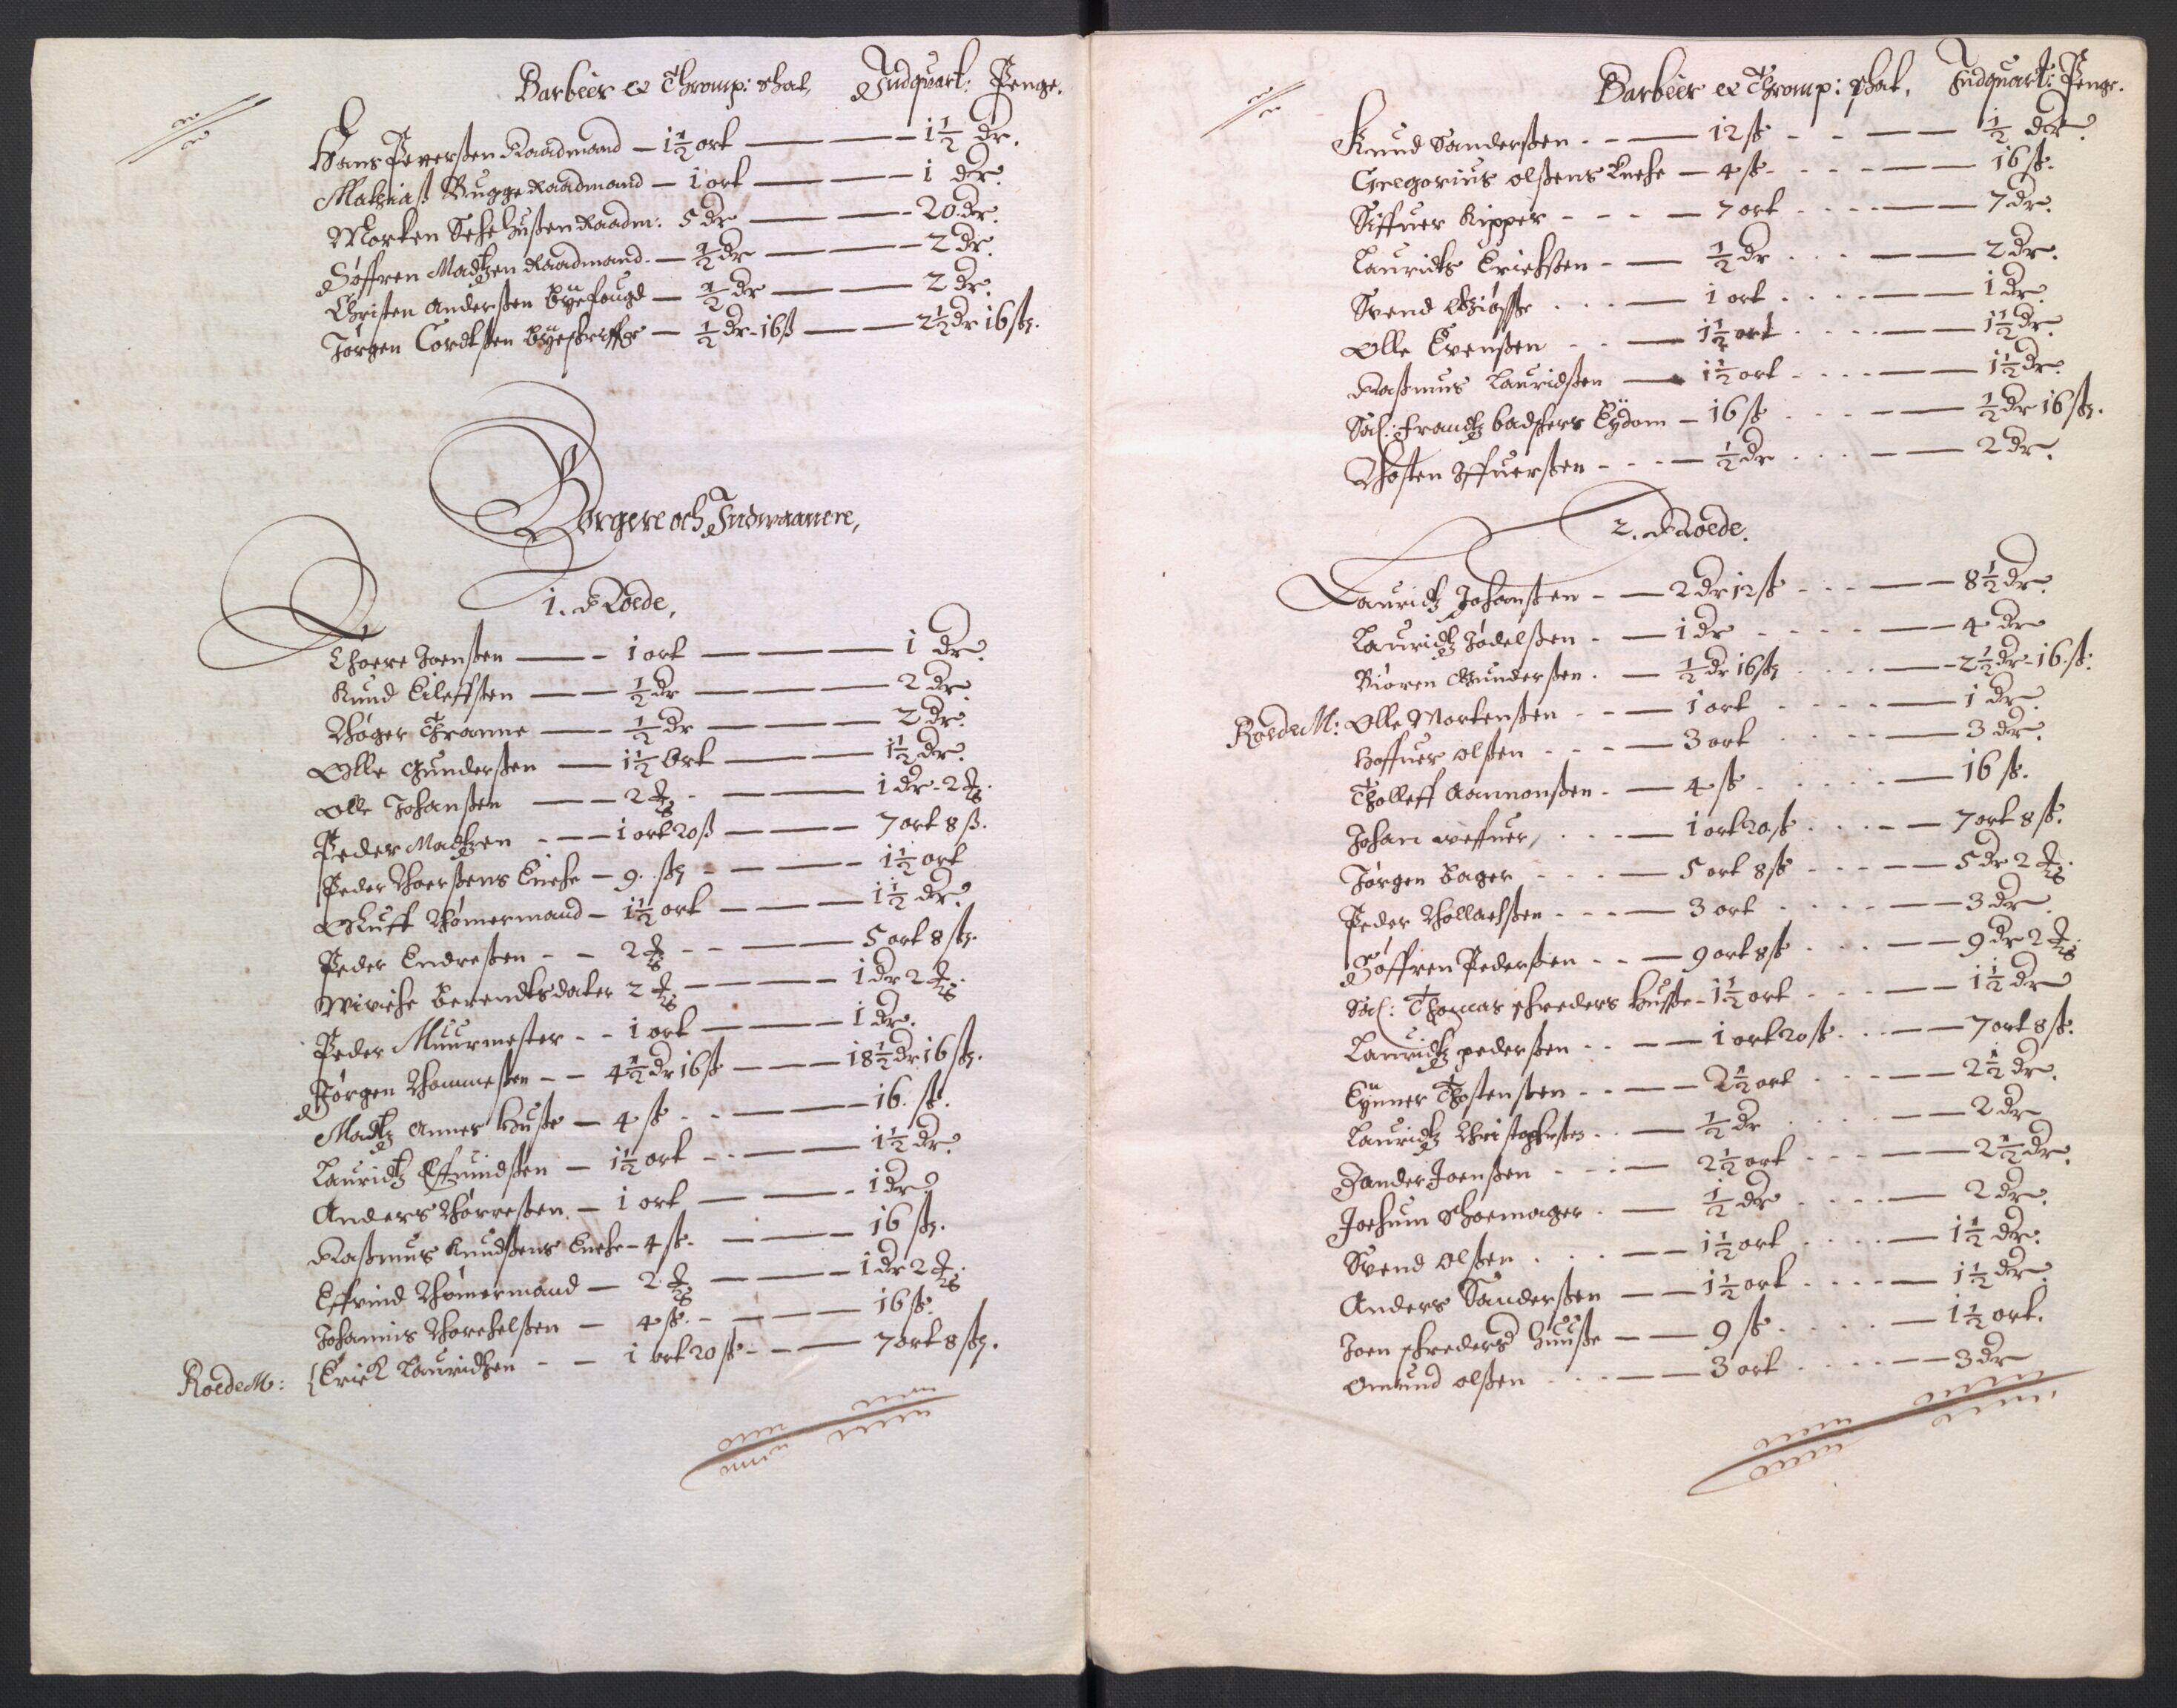 Barbeer et Thromp: skat, Indquart: Penge.
Hans Peersen Raadmand — 1½ ort — 1½ dr.
Mathias Bugge Raadmand — 1 ort — 1 dr.
Morten Sehehusen Raadm: 5 dr — 20 dr.
Søffren Madtzen Raadmand — ½ dr — 2 dr.
Christen Andersen Byefougd — ½ dr — 2 dr.
Jørgen Cordtsen Byeskriffer — ½ dr 16 ß — 2½ dr 16 ß.
Borgere och Indwaanere,
1. Roede,
Thoere Joensen — 1 ort — 1 dr.
Knud Eileffsen — ½ dr — 2 dr
Thøger Tranne — ½ dr — 2 dr.
Olle Gundersen — 1½ ort — 1½ dr.
Olle Johansen — 2 — 1 dr 2
Peder Madtzen — 1 ort 20 ß — 7 ort 8 ß.
Peder Thoersens Enche — 9 ß — 1½ ort
Gluff Thømermand — 1½ ort — 1½ dr.
Peder Endresen — 2 — 5 ort 8 ß.
Wiviche Berendtsdater 2 — 1 dr 2
Peder Muurmester — 1 ort — 1 dr.
Jørgen Thommesen — 4½ dr 16 ß — 18½ dr 16 ß.
Madtz Annes Huse — 4 ß — 16 ß.
Lauridtz Effuindsen — 1½ ort — 1½ dr.
Anders Thorresen — 1 ort — 1 dr
Rasmus Knudsens Enche — 4 ß — 16 ß.
Effvind Thømermand — 2 — 1 dr 2
Johannis Thorchelsen — 4 ß — 16 ß.
Roede M: Erick Lauridtzen — 1 ort 20 ß — 7 ort 8 ß.
Barbeer et Thromp: skat, Indquart: Penge.
Knud Sandersen — 12 ß — ½ dr.
Gregorius Olsens Enche — 4 ß — 16 ß.
Siffuer Kipper — 7 ort — 7 dr.
Lauridts Erichsen — ½ dr — 2 dr.
Svend — 1 ort — 1 dr.
Olle Evensen — 1½ ort — 1½ dr.
Rasmus Lauridsen — 1½ ort — 1½ dr.
Sal: Frandtz Badskers Eydom — 16 ß — ½ dr 16 ß.
Thosten Iffuersen — ½ dr — 2 dr.
2. Roede.
Lauridtz Johansen — 2 dr 12 ß — 8½ dr.
Lauridtz Jødelsen — 1 dr — 4 dr
Biøren Gundersen — ½ dr 16 ß — 2½ dr 16 ß.
Roede M: Olle Mortensen — 1 ort — 1 dr.
Haffuer Olsen — 3 ort — 3 dr.
Tholleff Aamonsen — 4 ß — 16 ß.
Johan Weffuer, — 1 ort 20 ß — 7 ort 8 ß.
Jørgen Bager — 5 ort 8 ß — 5 dr 2
Peder Thollachsen — 3 ort — 3 dr.
Søffren Pedersen — 9 ort 8 ß — 9 dr 2
Sal: Thomas Skreders Huuse — 1½ ort — 1½ dr
Lauridtz Pedersen — 1 ort 20 ß — 7 ort 8 ß.
Eyner Thostensen — 2½ ort — 2½ dr.
Lauridtz Christophersen — ½ dr — 2 dr
Sander Joensen — 2½ ort — 2½ dr.
Jochum Skoemager — ½ dr — 2 dr.
Svend Olsen — 1½ ort — 1½ dr.
Anders Sandersen — 1½ ort — 1½ dr.
Joen Skreders Huuse — 9 ß — 1½ ort.
Omund Olsen — 3 ort — 3 dr